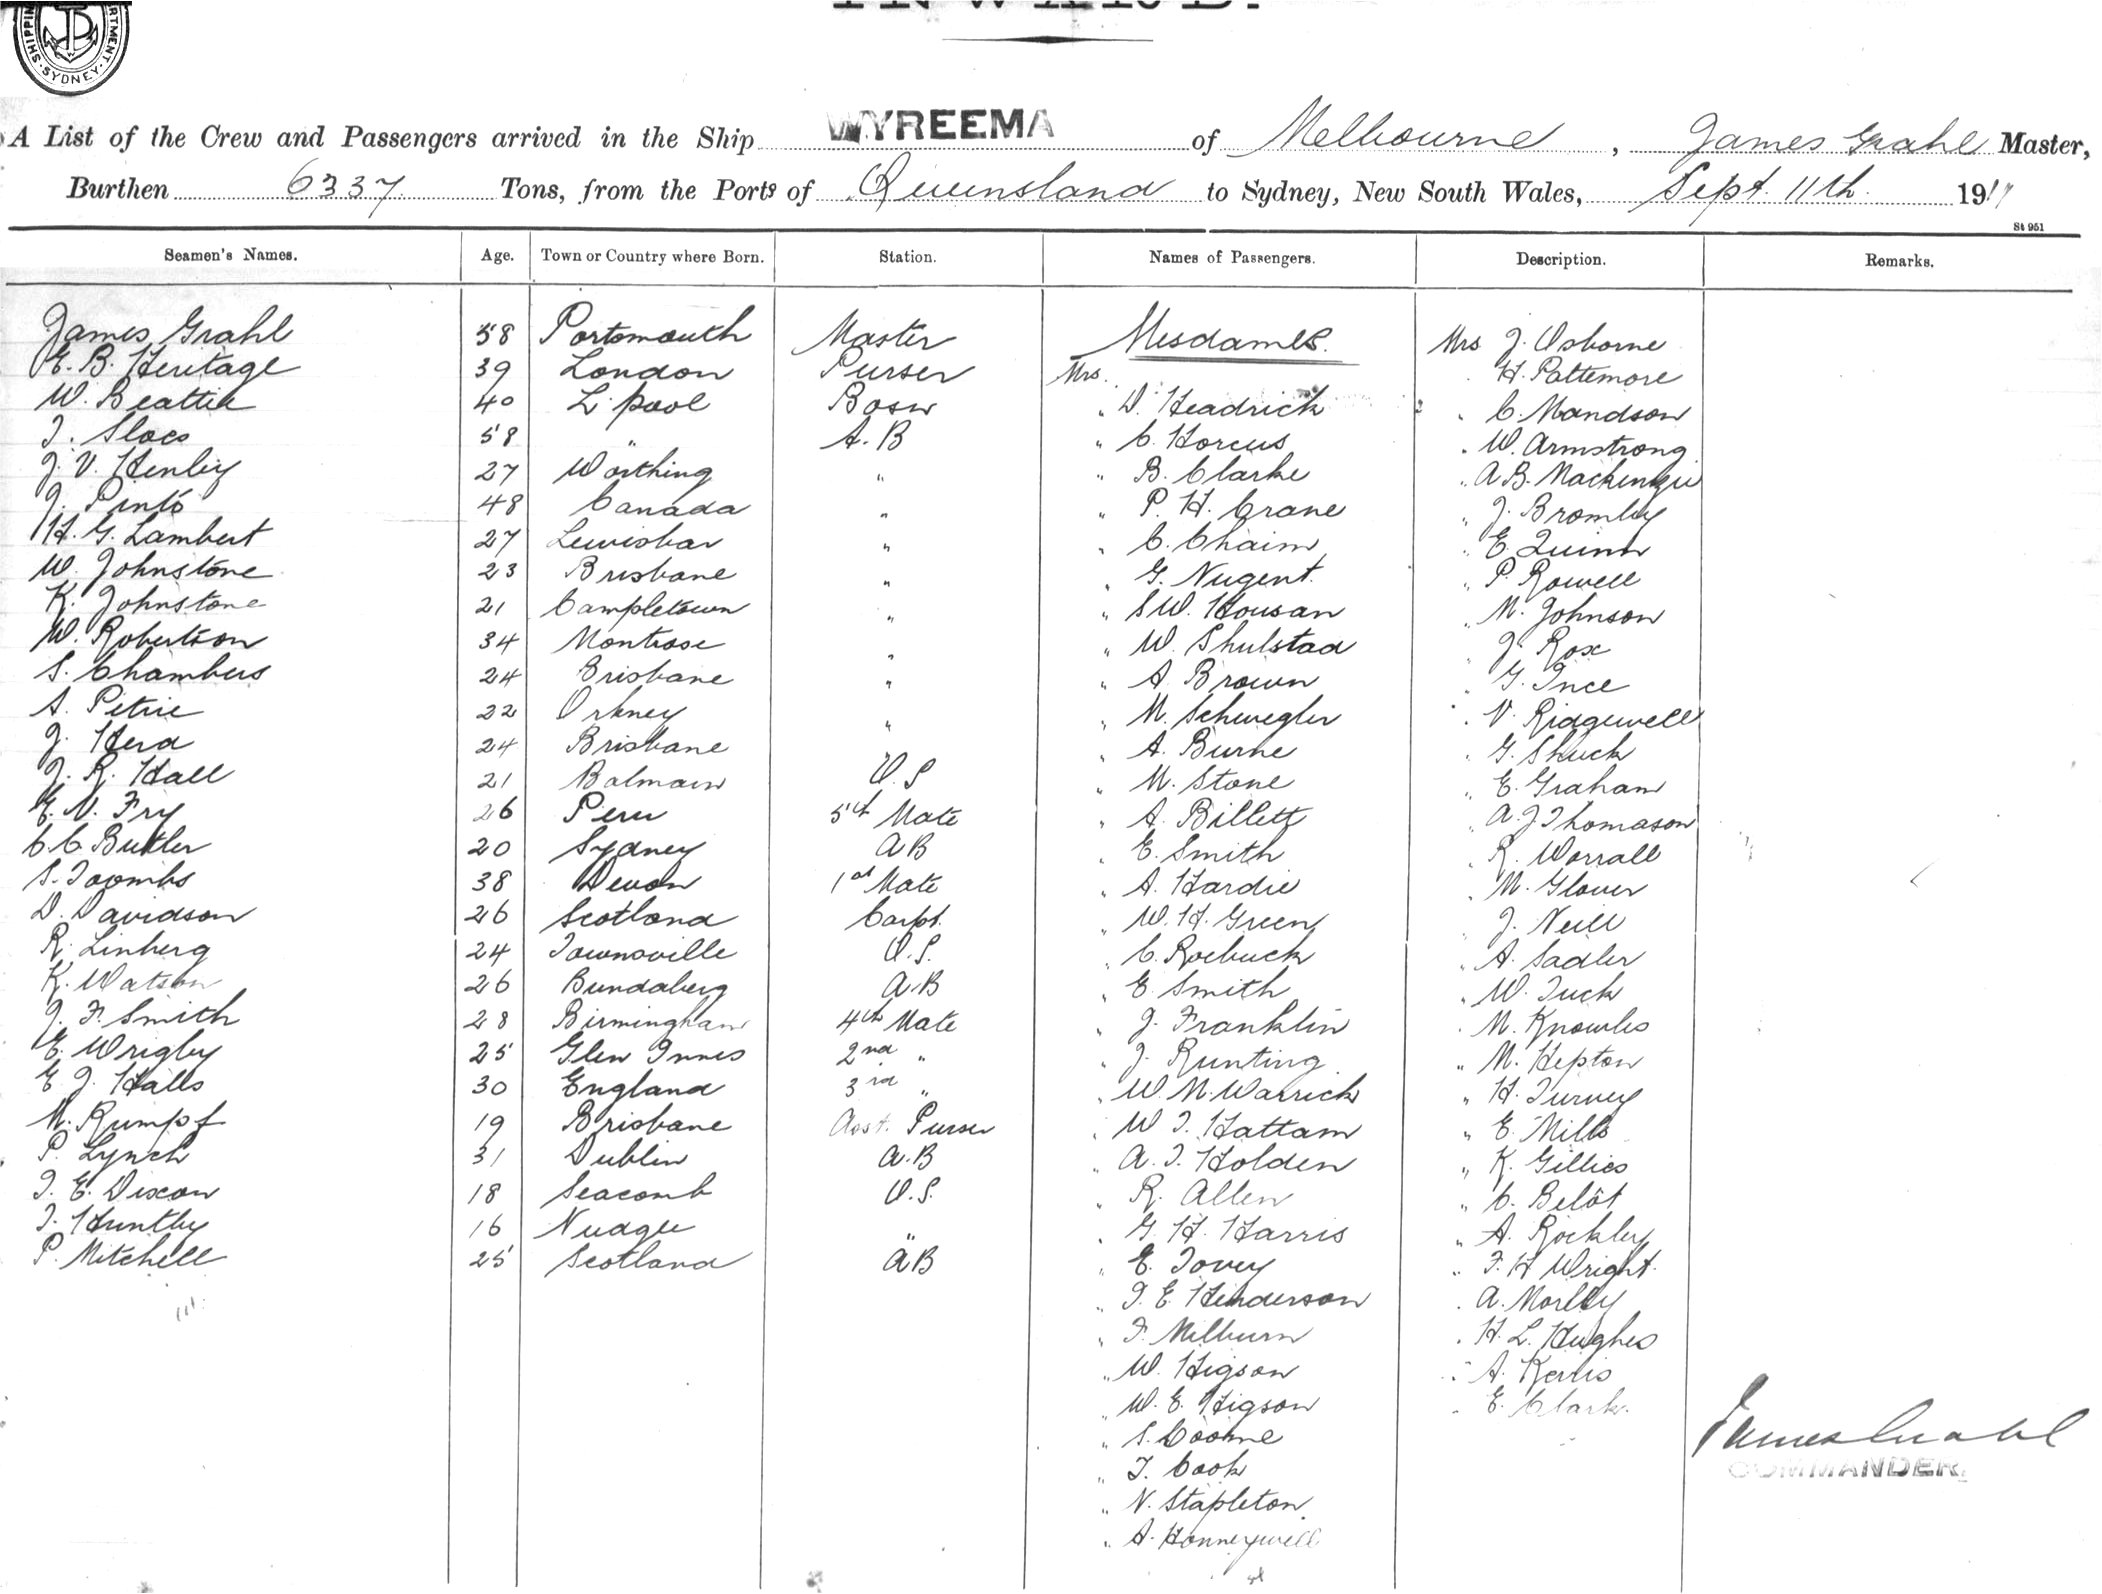 INWARD.
SHIPPING DEPARTMENT. SYDNEY.
A List of the Crew and Passengers arrived in the Ship WYREEMA of Melbourne, James Grahl Master,
Burthen 6337 Tons, from the Ports of Queensland to Sydney, New South Wales, Sept. 11th. 1917
St 951
Seamen's Names. Age. Town or Country where Born. Station. Names of Passengers. Description. Remarks.
James Grahl 58 Portsmouth Master Mesdames. Mrs J. Osborne
E. B. Heritage 39 London Purser Mrs. H. Pattemore
W. Beattie 40 L'pool Bosn " D. Headrick " C. Mandson
T. Sloes 58 " A. B " C. Horcus " W. Armstrong
J. V. Henley 27 Worthing " " B. Clarke " A B. Mackenzie
J. Pinto 48 Canada " " P. H. Crane " J. Bromley
H. G. Lambert 27 " " C. Chaim " E. Quinn
W. Johnstone 23 Brisbane " " G. Nugent. " P. Rowell
K. Johnstone 21 Campletown " " S W. Housan " M. Johnson
W. Robertson 34 Montrose " " W. Shulstad " J. Rose
S. Chambers 24 Brisbane " " A. Brown " G. Ince
A. Petrie 22 Orkney " " M. Schwegler " V. Ridgewell
J. Herd 24 Brisbane " A. Burne " G. Shuck
J. R. Hall 21 Balmain O. S " M. Stone " E. Graham
E. N. Fry 26 Peru 5th Mate " A. Billett " A. J Thomason
C. C. Butler 20 Sydney A B " E. Smith " R. Worrall
S. Toombs 38 Devon 1st Mate " A. Hardie " M. Glover
D. Davidson 26 Scotland Carpt. " W. H. Green " J. Neill
R. Linberg 24 Townsville O. S. " C. Roebuck " A. Sadler
K. Watson 26 Bundaberg A. B " E. Smith " W. Tuck
J. F. Smith 28 Birmingham 4th Mate " J. Franklin " M. Knowles
E. Wrigley 25 Glen Innes 2nd " " J. Runting " M. Hepton
E J. Halls 30 England 3rd " " W. M. Warrick " H. Turvey
M. Rumpf 19 Brisbane Asst. Purser " W T. Hattam " E. Mills
P. Lynch 31 Dublin A. B " A. T. Holden " K. Gillies
T. E. Dixon 18 Seacomb O. S. " R. Allen " C. Belôt
T. Huntley 16 Nudgee " " G. H. Harris " A. Rockley
P. Mitchell 25 Scotland A B " E. Tovey " F. H Wright.
" T. E. Henderson " A. Morley
" F. Milburn " H. L. Hughes
" W. Higson " A. Kerris
" W. E. Higson " E. Clark.
" S. Coome
" T. Cook
" N. Stapleton
" A. Honneywell
James Grahl
COMMANDER.